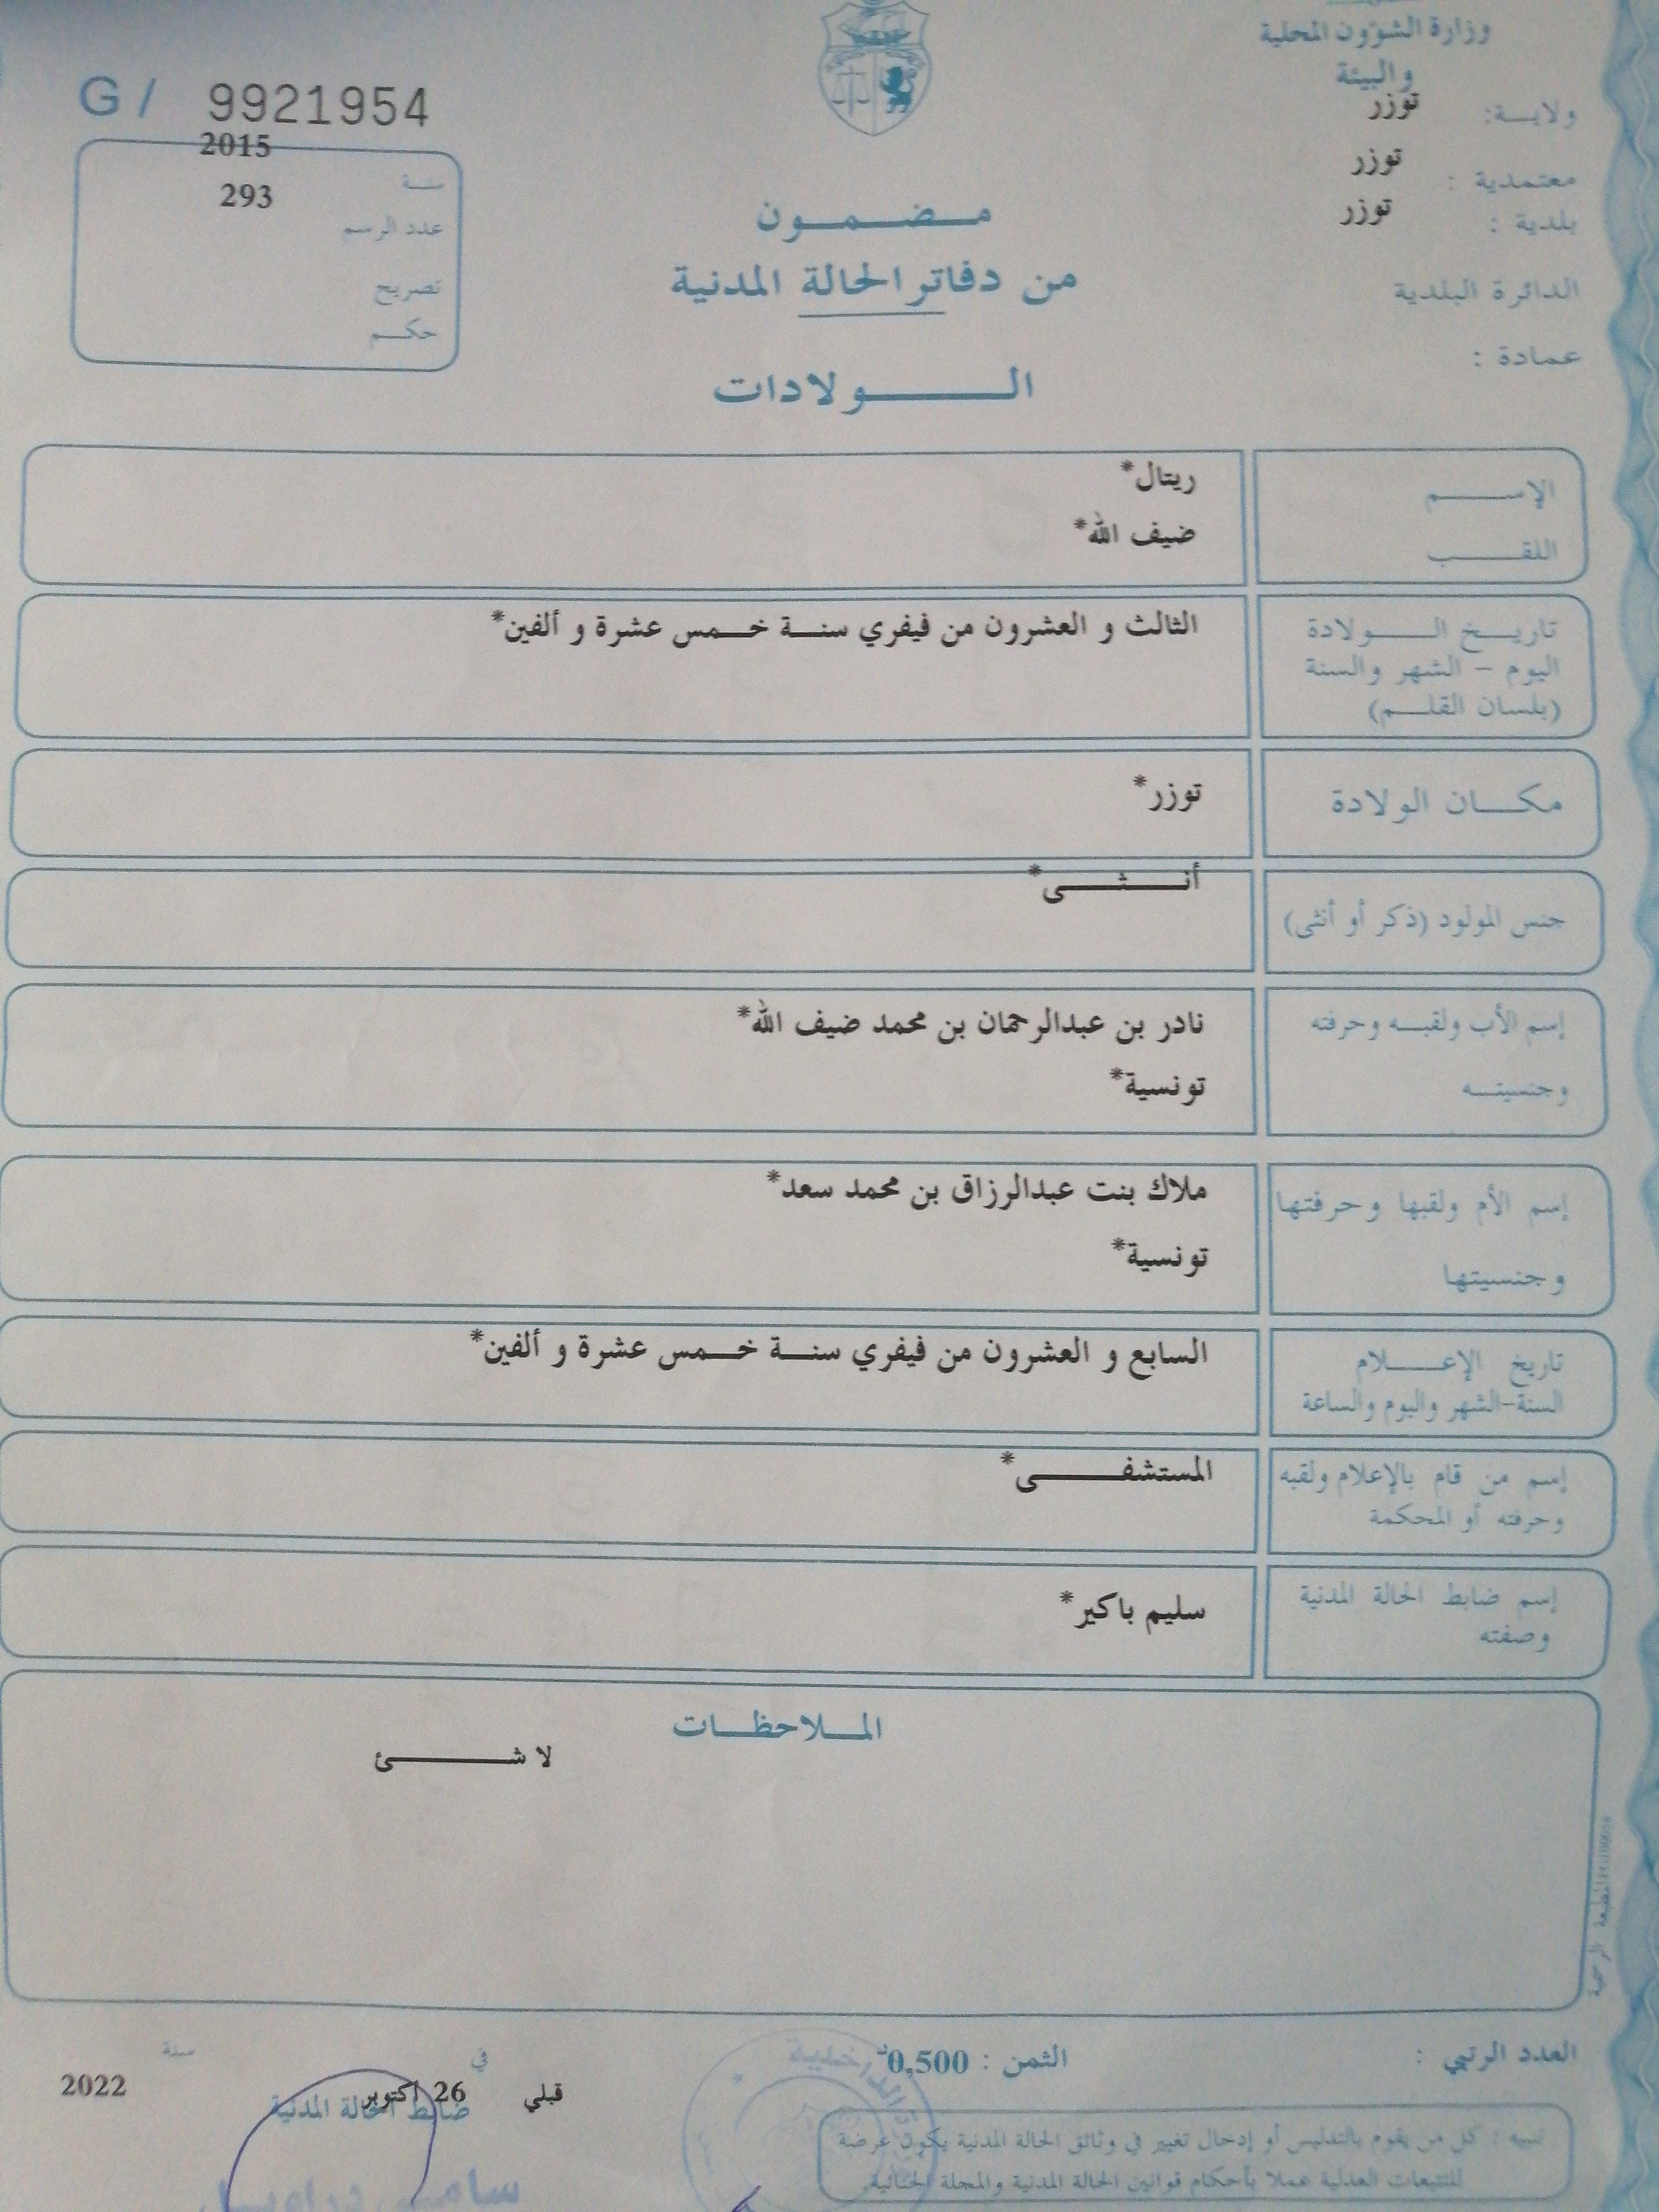 وزارة الشؤون المحلية
والبيئة
ولايـــة: توزر
معتمدية : توزر
بلدية : توزر
الدائرة البلدية
عمادة :
G/ 9921954
سنـة 2015
عدد الرسم 293
تصريح
حكـــم
مــضــمــون
من دفاتر الحالة المدنية
الــــولادات
الإســـــم ريتال*
اللقــــب ضيف الله*
تاريــخ الـــــولادة الثالث و العشرون من فيفري سنــة خــمس عشرة و ألفين*
اليوم – الشهر والسنة
(بلسان القلــم)
مكـــان الولادة توزر*
جنس المولود (ذكر أو أنثى) أنــــثــــى*
إسم الأب ولقبــه وحرفته نادر بن عبدالرحمان بن محمد ضيف الله*
وجنسيتــه تونسية*
إسم الأم ولقبها وحرفتها ملاك بنت عبدالرزاق بن محمد سعد*
وجنسيتها تونسية*
تاريخ الإعــــلام السابع و العشرون من فيفري سنــة خــمس عشرة و ألفين*
السنة-الشهر واليوم والساعة
إسم من قام بالإعلام ولقبه المستشفـــــى*
وحرفته أو المحكمة
إسم ضابط الحالة المدنية سليم باكير*
وصفته
المــلاحظــات
لا شـــــئ
المطبعة الرسمية
العدد الرتبي :
الثمن : 0,500د
قبلي في 26 أكتوبر سنـة 2022
ضابط الحالة المدنية
تنبيه : كل من يقوم بالتدليس أو إدخال تغيير في وثائق الحالة المدنية يكون عرضة
للتتبعات العدلية عملا بأحكام قوانين الحالة المدنية والمجلة الجنائية.